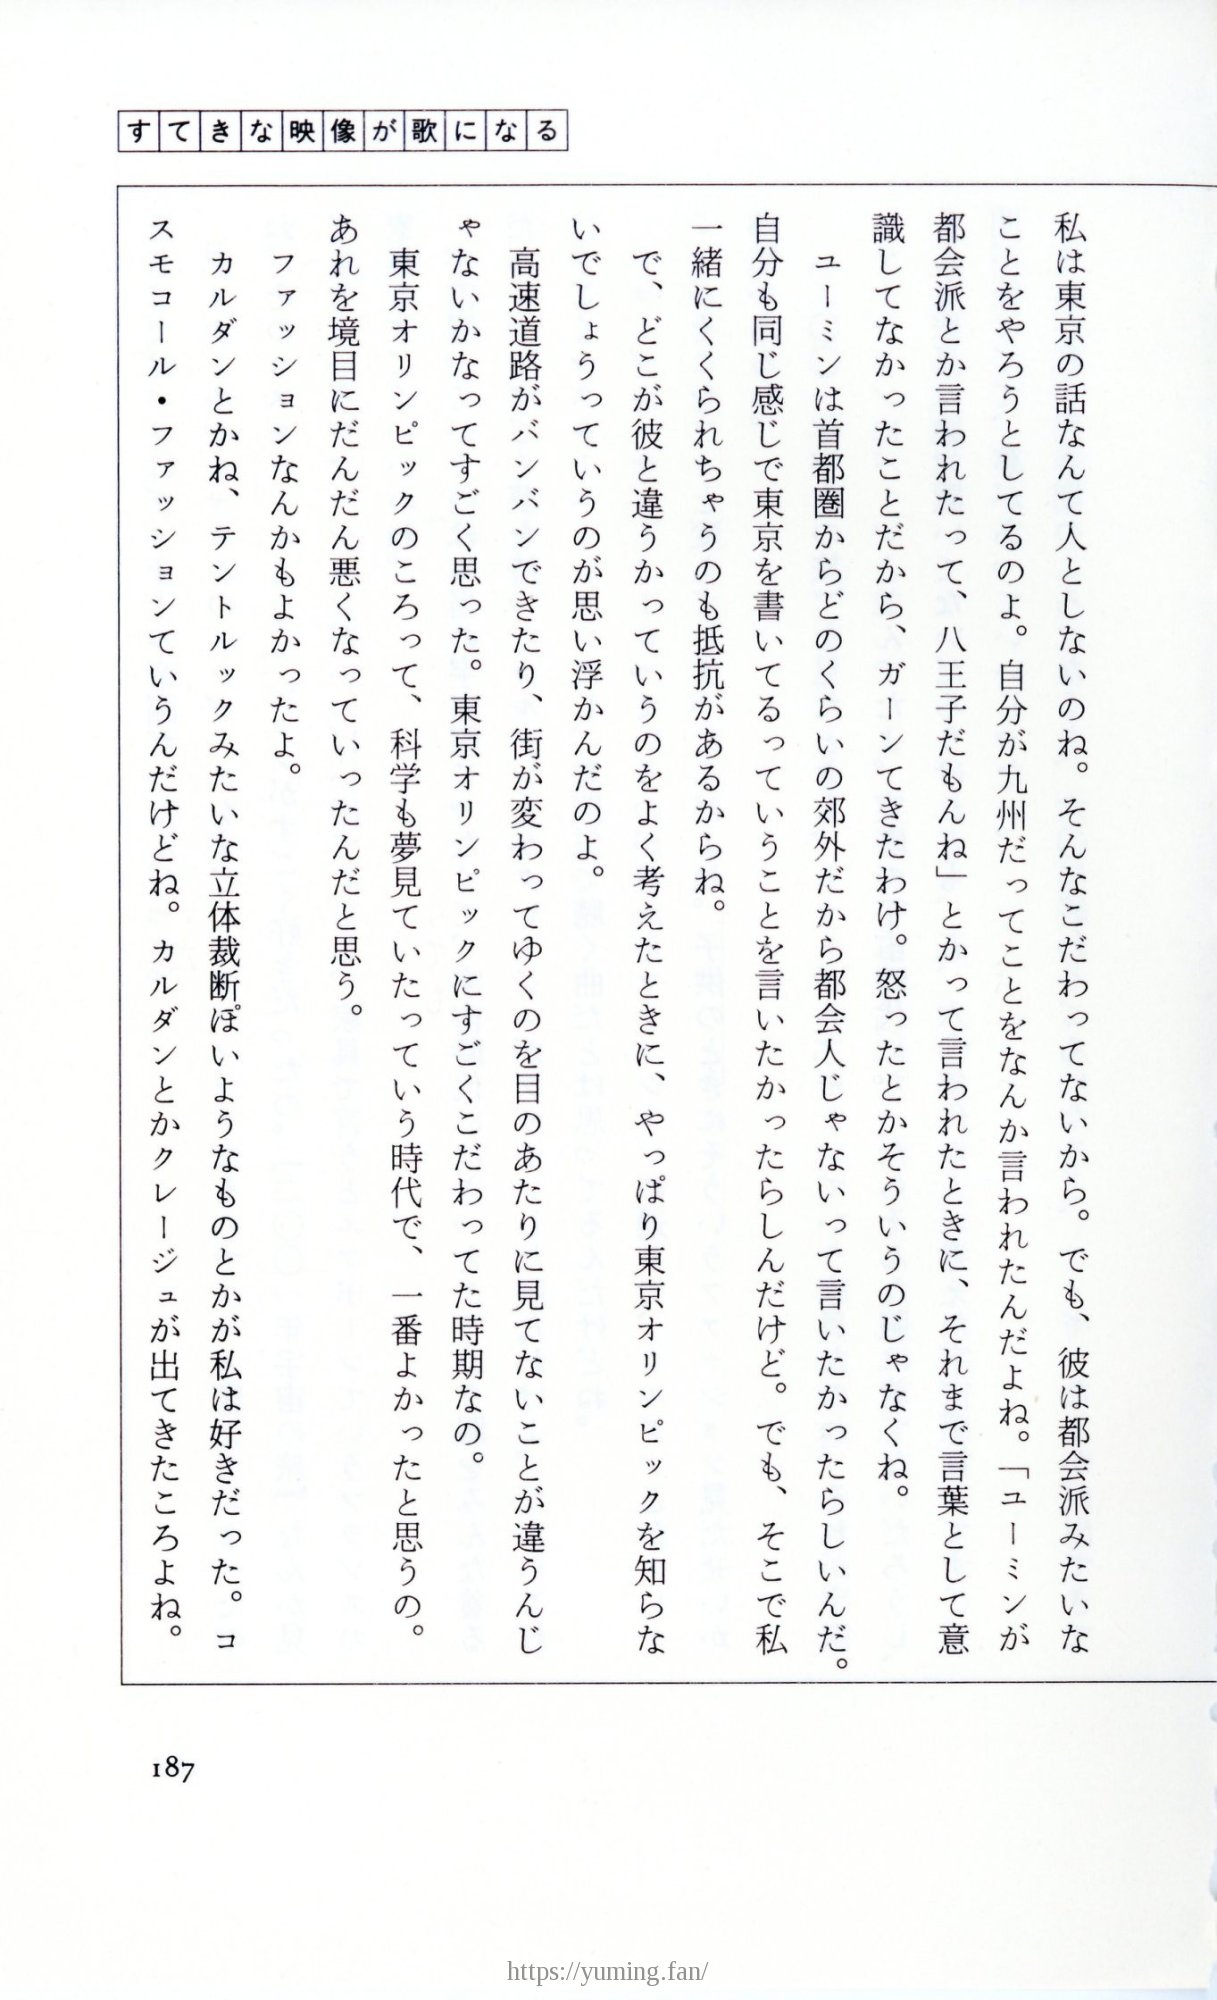 すてきな映像が歌になる
私は東京の話なんて人としないのね。そんなこだわってないから。でも、彼は都会派みたいな
ことをやろうとしてるのよ。自分が九州だってことをなんか言われたんだよね。「ユーミンが
都会派とか言われたって、八王子だもんね」とかって言われたときに、それまで言葉として意
識してなかったことだから、ガーンてきたわけ。怒ったとかそういうのじゃなくね。
ユーミンは首都圏からどのくらいの郊外だから都会人じゃないって言いたかったらしいんだ。
自分も同じ感じで東京を書いてるっていうことを言いたかったらしんだけど。でも、そこで私
一緒にくくられちゃうのも抵抗があるからね。
で、どこが彼と違うかっていうのをよく考えたときに、やっぱり東京オリンピックを知らな
いでしょうっていうのが思い浮かんだのよ。
高速道路がバンバンできたり、街が変わってゆくのを目のあたりに見てないことが違うんじ
ゃないかなってすごく思った。東京オリンピックにすごくこだわってた時期なの。
東京オリンピックのころって、科学も夢見ていたっていう時代で、一番よかったと思うの。
あれを境目にだんだん悪くなっていったんだと思う。
ファッションなんかもよかったよ。
カルダンとかね、テントルックみたいな立体裁断ぽいようなものとかが私は好きだった。コ
スモコール・ファッションていうんだけどね。カルダンとかクレージュが出てきたころよね。
187
https://yuming.fan/